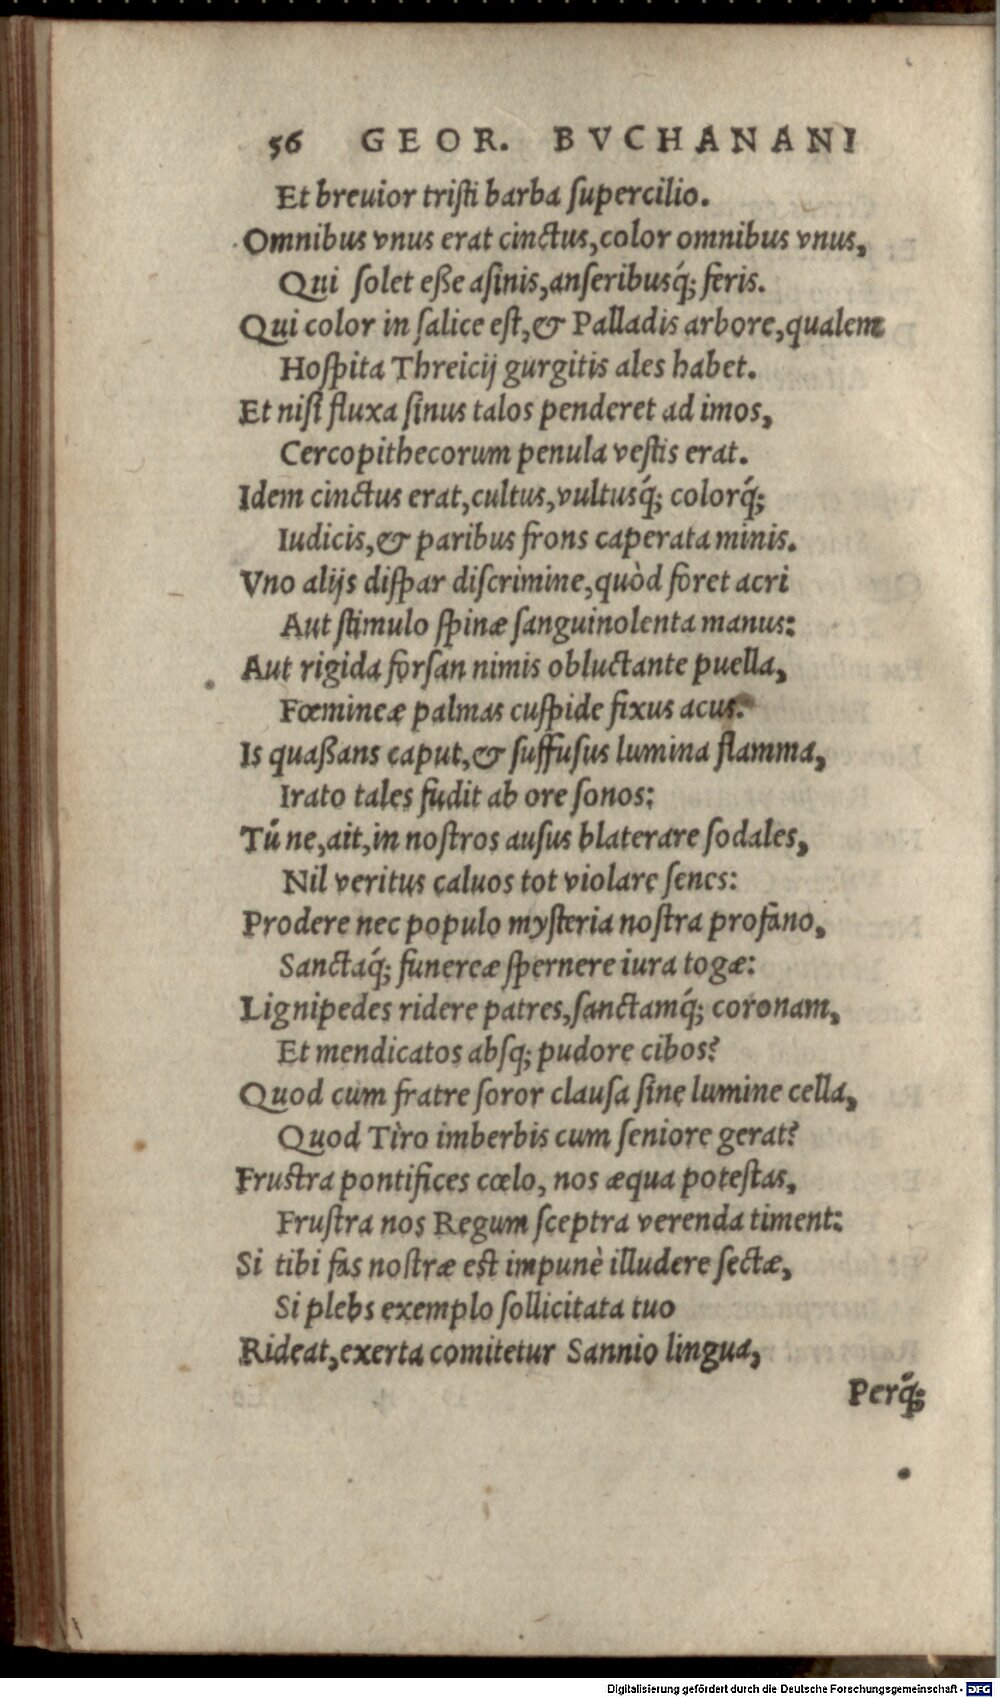 56 GEOR. BVCHANANI
Et breuior tristi barba supercilio.
Omnibus vnus erat cinctus, color omnibus vnus,
Qui solet eße asinis, anseribusq́; feris.
Qui color in salice est, & Palladis arbore, qualem
Hospita Threicij gurgitis ales habet.
Et nisi fluxa sinus talos penderet ad imos,
Cercopithecorum penula vestis erat.
Idem cinctus erat, cultus, vultusq́; colorq́;
Iudicis, & paribus frons caperata minis.
Vno alijs dispar discrimine, quòd foret acri
Aut stimulo spinæ sanguinolenta manus:
Aut rigida forsan nimis obluctante puella,
Fœmineæ palmas cuspide fixus acus.
Is quaßans caput, & suffusus lumina flamma,
Irato tales fudit ab ore sonos:
Tú ne, ait, in nostros ausus blaterare sodales,
Nil veritus caluos tot violare senes:
Prodere nec populo mysteria nostra profano,
Sanctaq́; funereæ spernere iura togæ:
Lignipedes ridere patres, sanctamq́; coronam,
Et mendicatos absq; pudore cibos?
Quod cum fratre soror clausa sine lumine cella,
Quod Tiro imberbis cum seniore gerat?
Frustra pontifices cœlo, nos æqua potestas,
Frustra nos Regum sceptra verenda timent:
Si tibi fas nostræ est impunè illudere sectæ,
Si plebs exemplo sollicitata tuo
Rideat, exerta comitetur Sannio lingua,
Perq́;
Digitalisierung gefördert durch die Deutsche Forschungsgemeinschaft - DFG